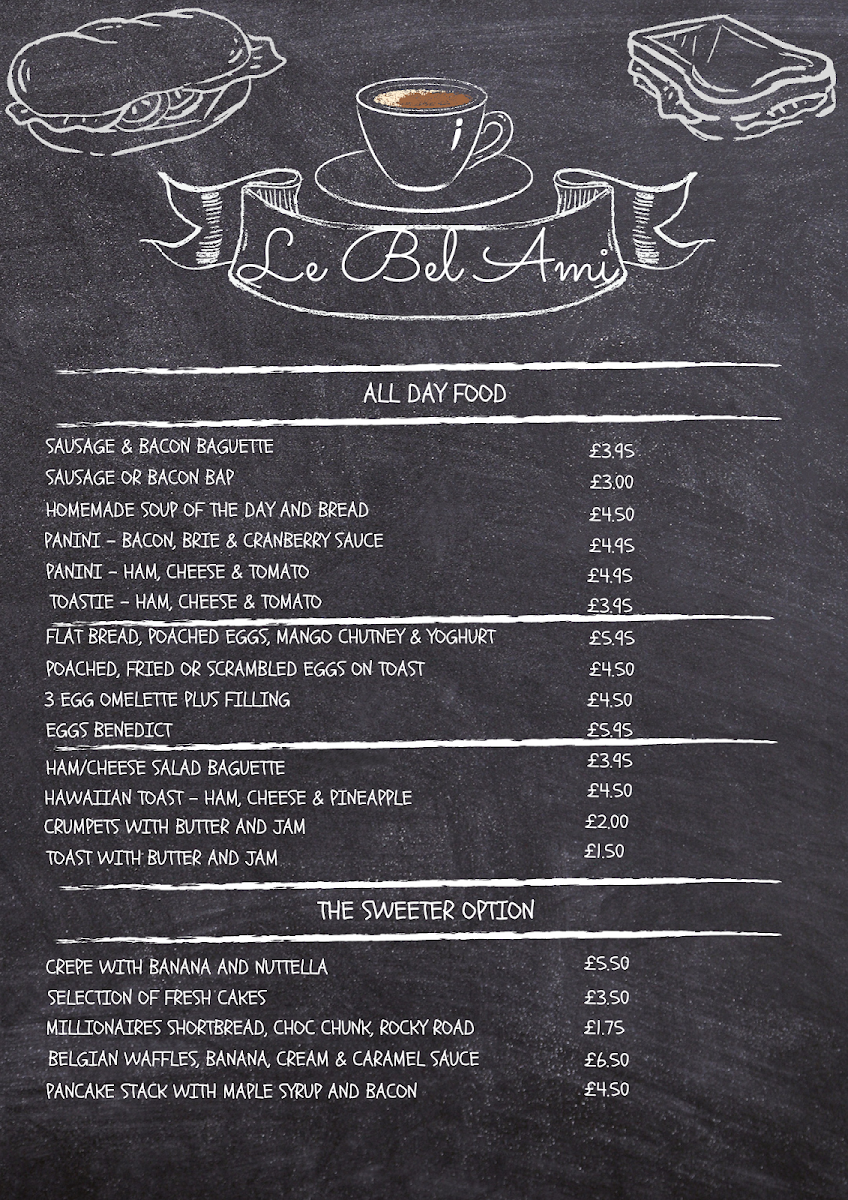 Le Bel Ami
ALL DAY FOOD
SAUSAGE & BACON BAGUETTE £3.95
SAUSAGE OR BACON BAP £3.00
HOMEMADE SOUP OF THE DAY AND BREAD £4.50
PANINI – BACON, BRIE & CRANBERRY SAUCE £4.95
PANINI – HAM, CHEESE & TOMATO £4.95
TOASTIE – HAM, CHEESE & TOMATO £3.95
FLAT BREAD, POACHED EGGS, MANGO CHUTNEY & YOGHURT £5.95
POACHED, FRIED OR SCRAMBLED EGGS ON TOAST £4.50
3 EGG OMELETTE PLUS FILLING £4.50
EGGS BENEDICT £5.95
HAM/CHEESE SALAD BAGUETTE £3.95
HAWAIIAN TOAST – HAM, CHEESE & PINEAPPLE £4.50
CRUMPETS WITH BUTTER AND JAM £2.00
TOAST WITH BUTTER AND JAM £1.50
THE SWEETER OPTION
CREPE WITH BANANA AND NUTTELLA £5.50
SELECTION OF FRESH CAKES £3.50
MILLIONAIRES SHORTBREAD, CHOC CHUNK, ROCKY ROAD £1.75
BELGIAN WAFFLES, BANANA, CREAM & CARAMEL SAUCE £6.50
PANCAKE STACK WITH MAPLE SYRUP AND BACON £4.50